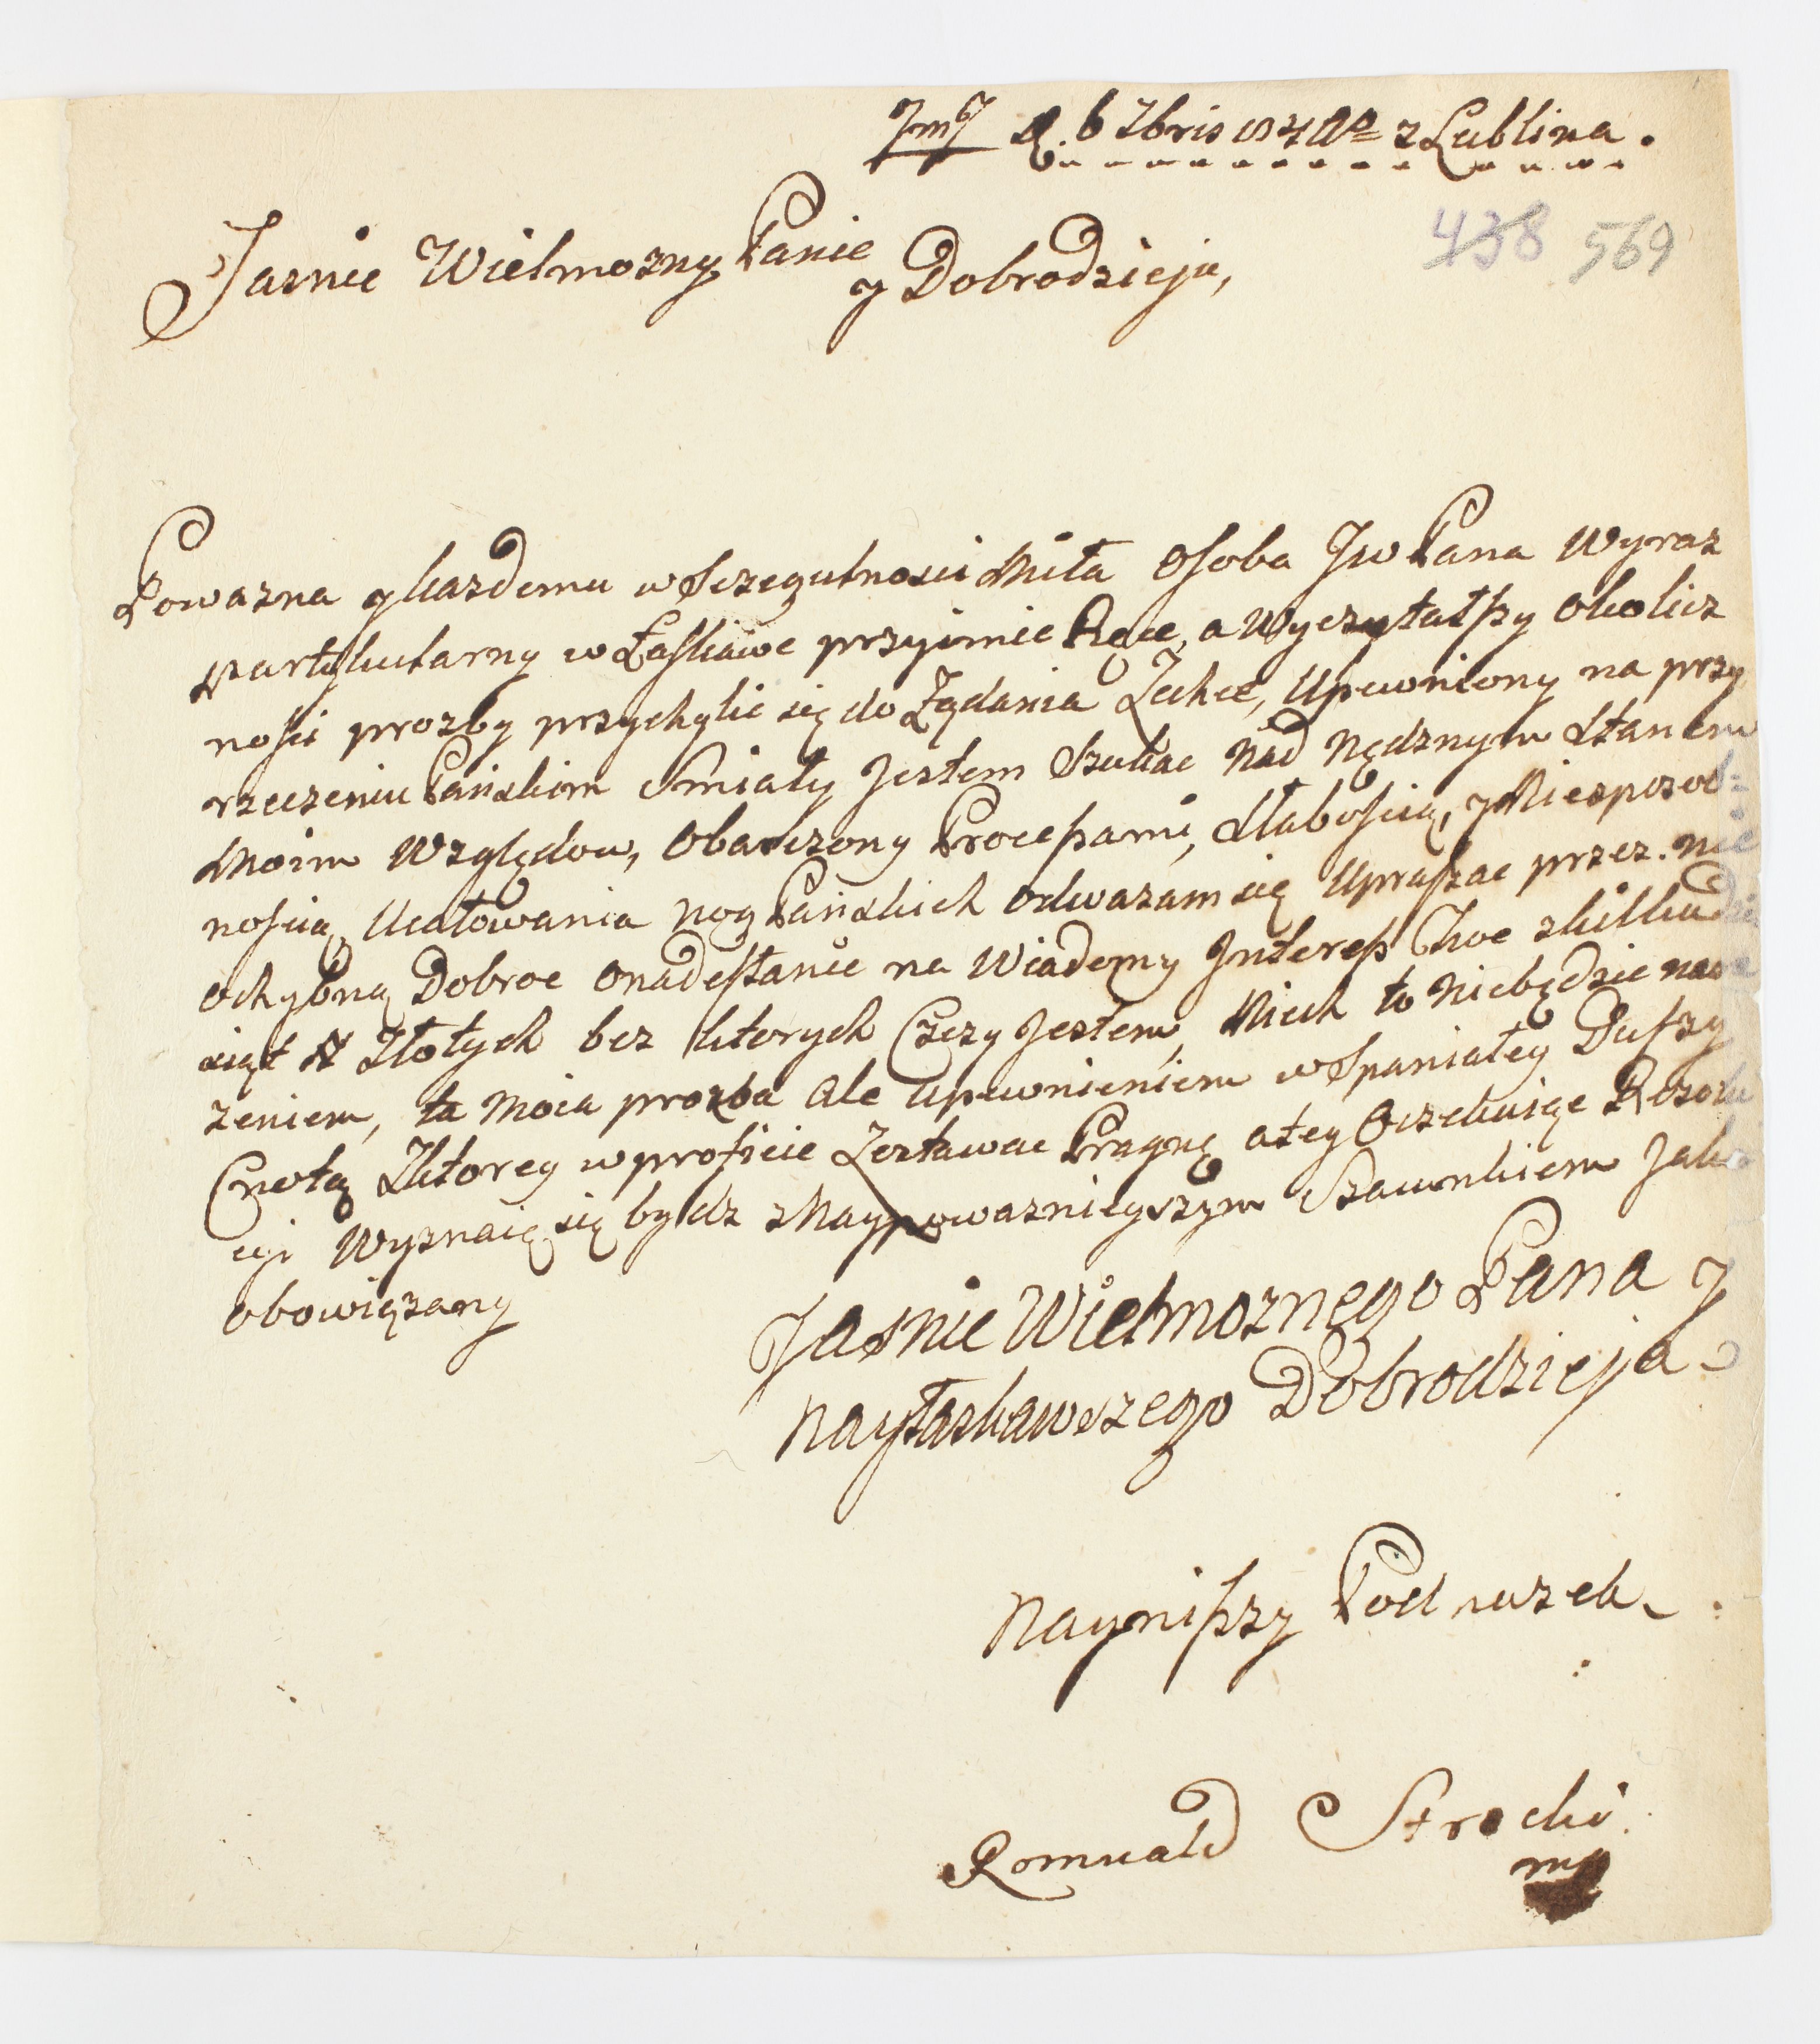 JmJ d. 6 Zbris z Lublina.
438 569
Jasnie Wielmozny Panie
y Dobrodzieju,
Powazna y kazdemu w Szczegulnosci Miła Osoba Jw Pana Wyraz
partykularny w Łaskawe przyimie Ręce, a Wyczytatszy okolicz
nosci prozby przychylic się do Żądania Zechce, Upewniony na przy
rzeczeniu Pańskim Smiały Jestem Szukac Nad Nędznym Stanem
Moim Względow, Obarczony Processami, Słaboscią, y Niesposob=
noscią Ucałowania nog Pańskich odwazam się Upraszac przez. nie
ochybną Dobroc o nadesłanie na Wiadomy Jnteress Two zkilkudzie
siąt # Złotych bez ktorych Czczy Jestem, Niech to Niebędzie nara
zeniem, ta Moia prozba ale upewnieniem wSpaniałey Duszy
Cnotą Zktorey wproficie Zostawac Pragnę atey Oczekuiąc Rezolu
cyi Wyznaię się bydz zNaypowaznieyszym Szacunkiem Jako
obowiązany
Jasnie Wielmoznego Pana J
Nayłaskawszego Dobrodzieja
Naynisszy Podnuzek
Romuald Strocki
mp